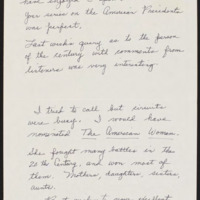 have enjoyed
series on the American Presidents
was perfect.
Last weeks query as to the person
of the century with comments from
listeners was very interesting.
I tried to call but circuits
were busy. I would have
nominated The American Woman.
She fought many battles in The
20th Century, and won most of
them. Mothers, daughters, sisters,
aunts.
excellent